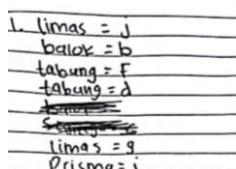 1. limas = j
balok = b
tabung = F
tabung = d
limas = g
Prisma = i